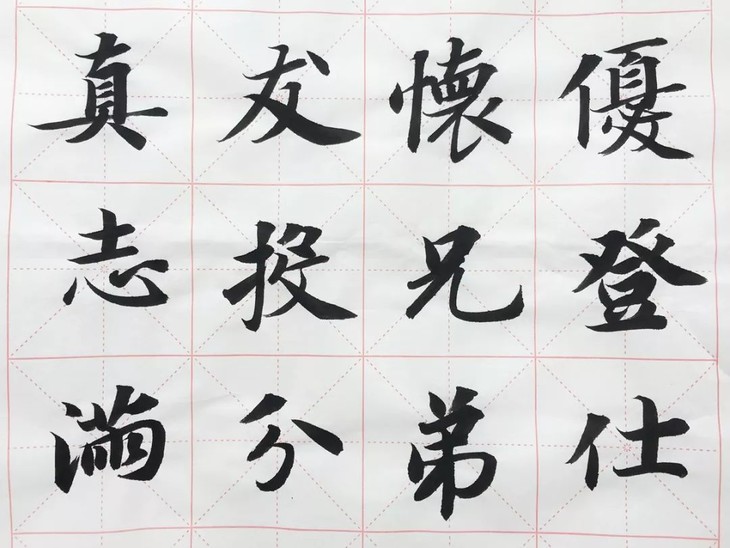 優登仕
懷兄弟
友投分
真志滿